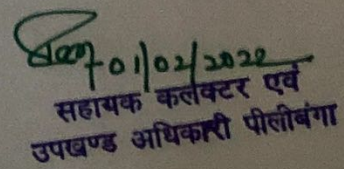 01/02/2022
सहायक कलेक्टर एवं
उपखण्ड अधिकारी पीलीबंगा